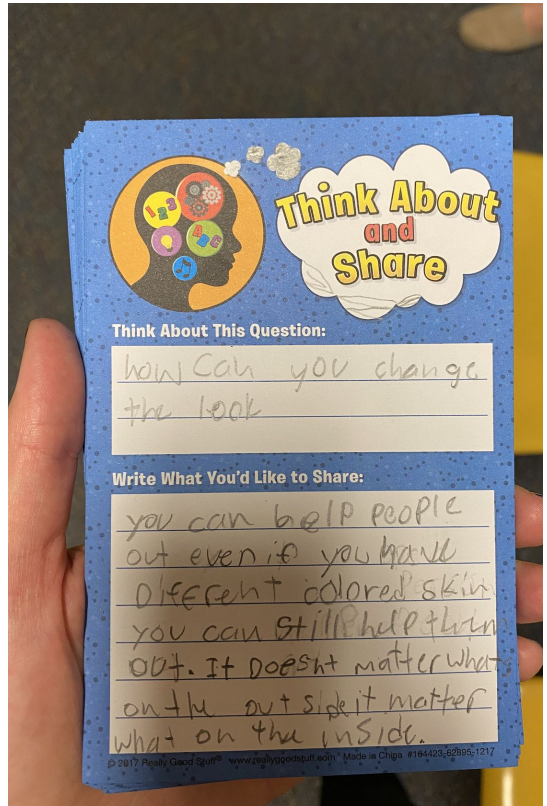 123
ABC
Think About
and
Share
Think About This Question:
how can you change
the look
Write What You'd Like to Share:
you can help people
out even if you have
Different colored skin
you can still help them
out. It Doesnt matter whats
on the out side it matter
what on the inside.
© 2017 Really Good Stuff® www.reallygoodstuff.com Made in China #164423-62895-1217